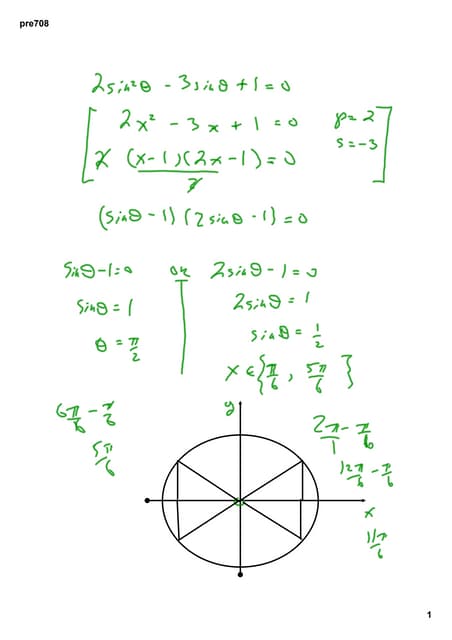 pre708
2sin²θ - 3sinθ + 1 = 0
2x² - 3x + 1 = 0 p = 2
s = -3
2 (x-1)(2x-1) = 0
2
(sinθ - 1)(2sinθ - 1) = 0
sinθ - 1 = 0 or 2sinθ - 1 = 0
sinθ = 1 2sinθ = 1
θ = π/2 sinθ = 1/2
x ∈ {π/6, 5π/6}
6π/6 - π/6 y 2π/1 - π/6
5π/6 12π/6 - π/6
x
11π/6
1